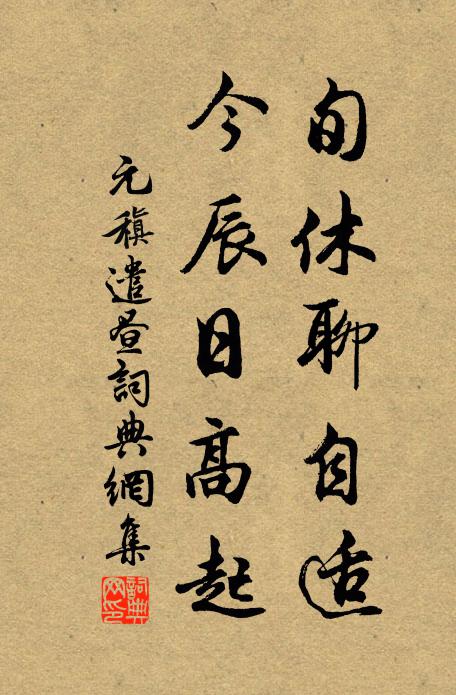 旬休聊自适
今辰日高起
元稹遣昼詞典網集
詞典网印